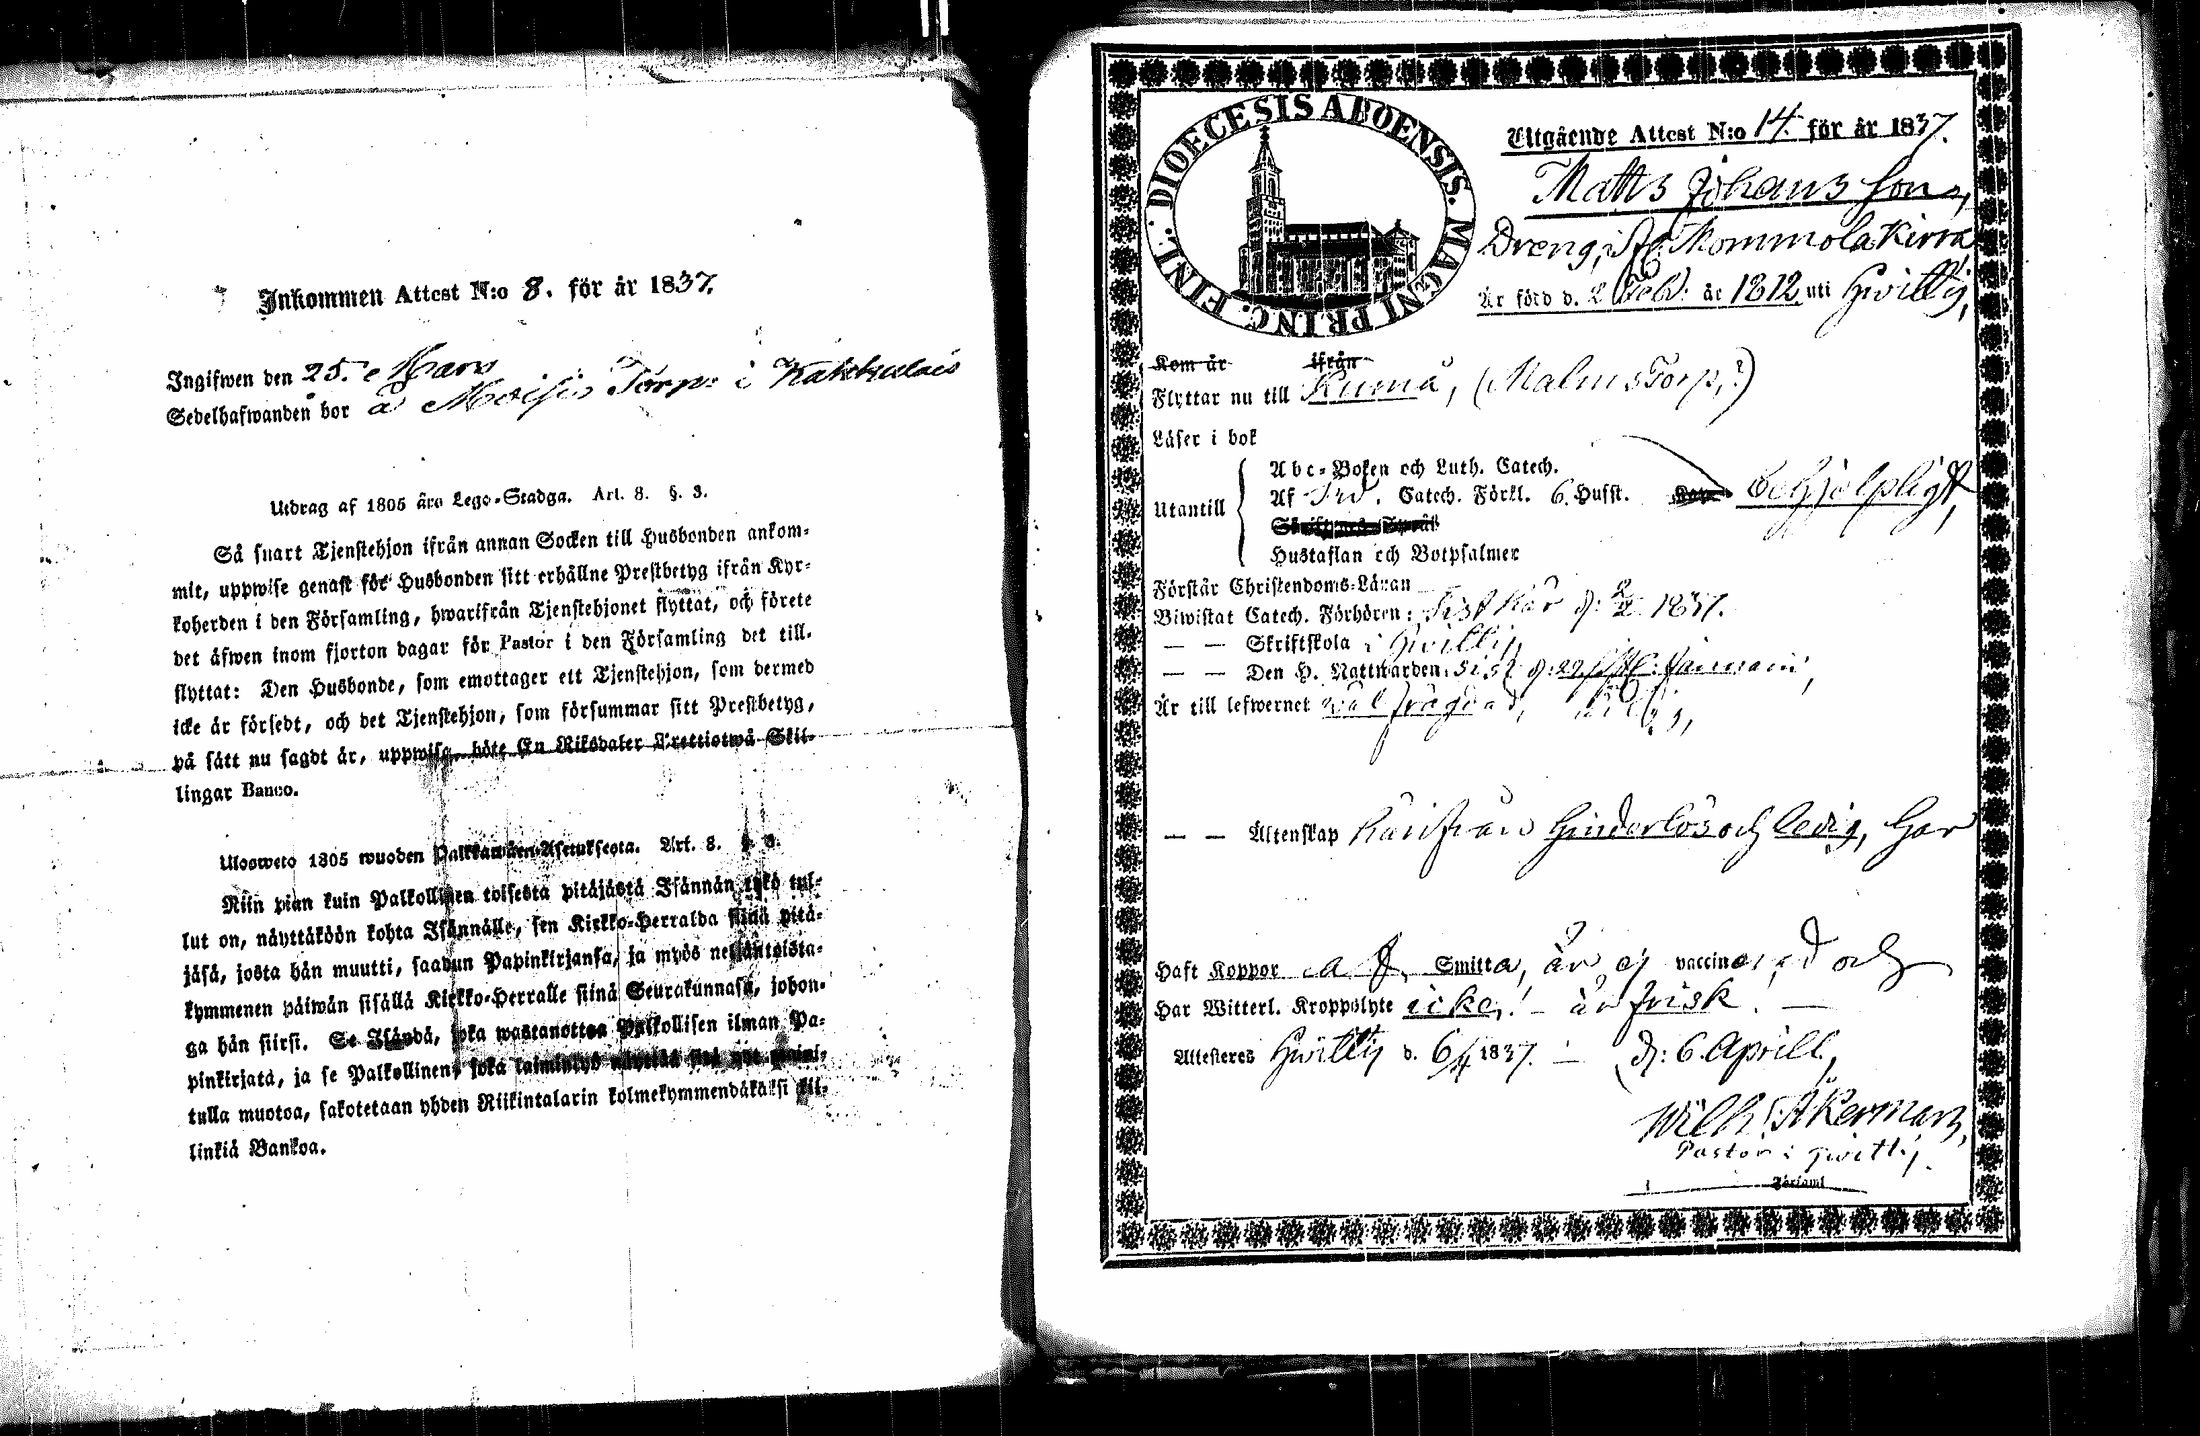 Inkommen Attest N:o 8. för år 1837.
Ingifwen den 25. e Mars
Sedelhafwanden bor å Moisio Torp: i Kakkulais
Utdrag af 1805 års Lego-Stadga. Art. 8. §. 3.
Så snart Tjenstehjon ifrån annan Socken till Husbonden ankom-
mit, uppwise genast för Husbonden sitt erhållne Prestbetyg ifrån Kyr-
koherden i den Församling, hwarifrån Tjenstehjonet flyttat, och förete
det äfwen inom fjorton dagar för Pastor i den Församling det till-
flyttat: Den Husbonde, som emottager ett Tjenstehjon, som dermed
icke är försedt, och det Tjenstehjon, som försummar sitt Prestbetyg,
på sätt nu sagdt är, uppwisa, böte En Riksdaler Trettiotwå Skil-
lingar Banco.
Ulosweto 1805 wuoden Palkkawäen-Asetuksesta. Art. 8. §. 3.
Niin pian kuin Palkollinen toisesta pitäjästä Isännän tykö tul-
lut on, näyttäköön kohta Isännälle, sen Kirkko-Herralda siinä pitä-
jäsä, josta hän muutti, saadun Papinkirjansa, ja myös neljäntoista-
kymmenen päiwän sisällä Kirkko-Herralle siinä Seurakunnasa, johon-
ga hän siirsi. Se Isändä, joka wastanottaa Palkollisen ilman Pa-
pinkirjatä, ja se Palkollinen, joka laiminlyö näyttää sitä nyt maini-
tulla muotoa, sakotetaan yhden Riikintalarin kolmekymmendäkaksi kil-
linkiä Bankoa.
DIOECESIS ABOENSIS. MAGNI PRINC. FINL.
Utgående Attest N:o 14. för år 1837.
Matts Johansson,
Dreng, Mommola Kirra
Är född d. 2 Feb: år 1812 uti Hwittis,
Kom år ifrån
Flyttar nu till Kumå, (Malms Torp,?)
Läser i bok
Utantill
Abc-Boken och Luth. Catech.
Af Sw. Catech. Förkl. 6. Husst. behjelpligt,
Hustaflan och Botpsalmer
Förstår Christendoms-Läran
Biwistat Catech. Förhören: Sist här d: 1837.
— — Skriftskola i Hwittis,
— — Den H. Nattwarden: Sist d: 22
Är till lefwernet wäl frägdad,
— — Äktenskap härifrån hinderlös och ledig, har
Haft Koppor af Smitta, är ej vaccinerad och
Har Witterl. Kroppslyte icke! - är frisk. —
Attesteres Hwittis d. 6/4 1837. — d: 6 Aprill,
Wilh: Åkerman,
Pastor i Hwittis.
Församl